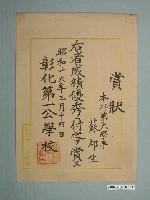 賞狀
本科第六學年
蘇郁生
右者成績優秀付予賞ス
昭和十六年三月十六日
彰化第一公學校